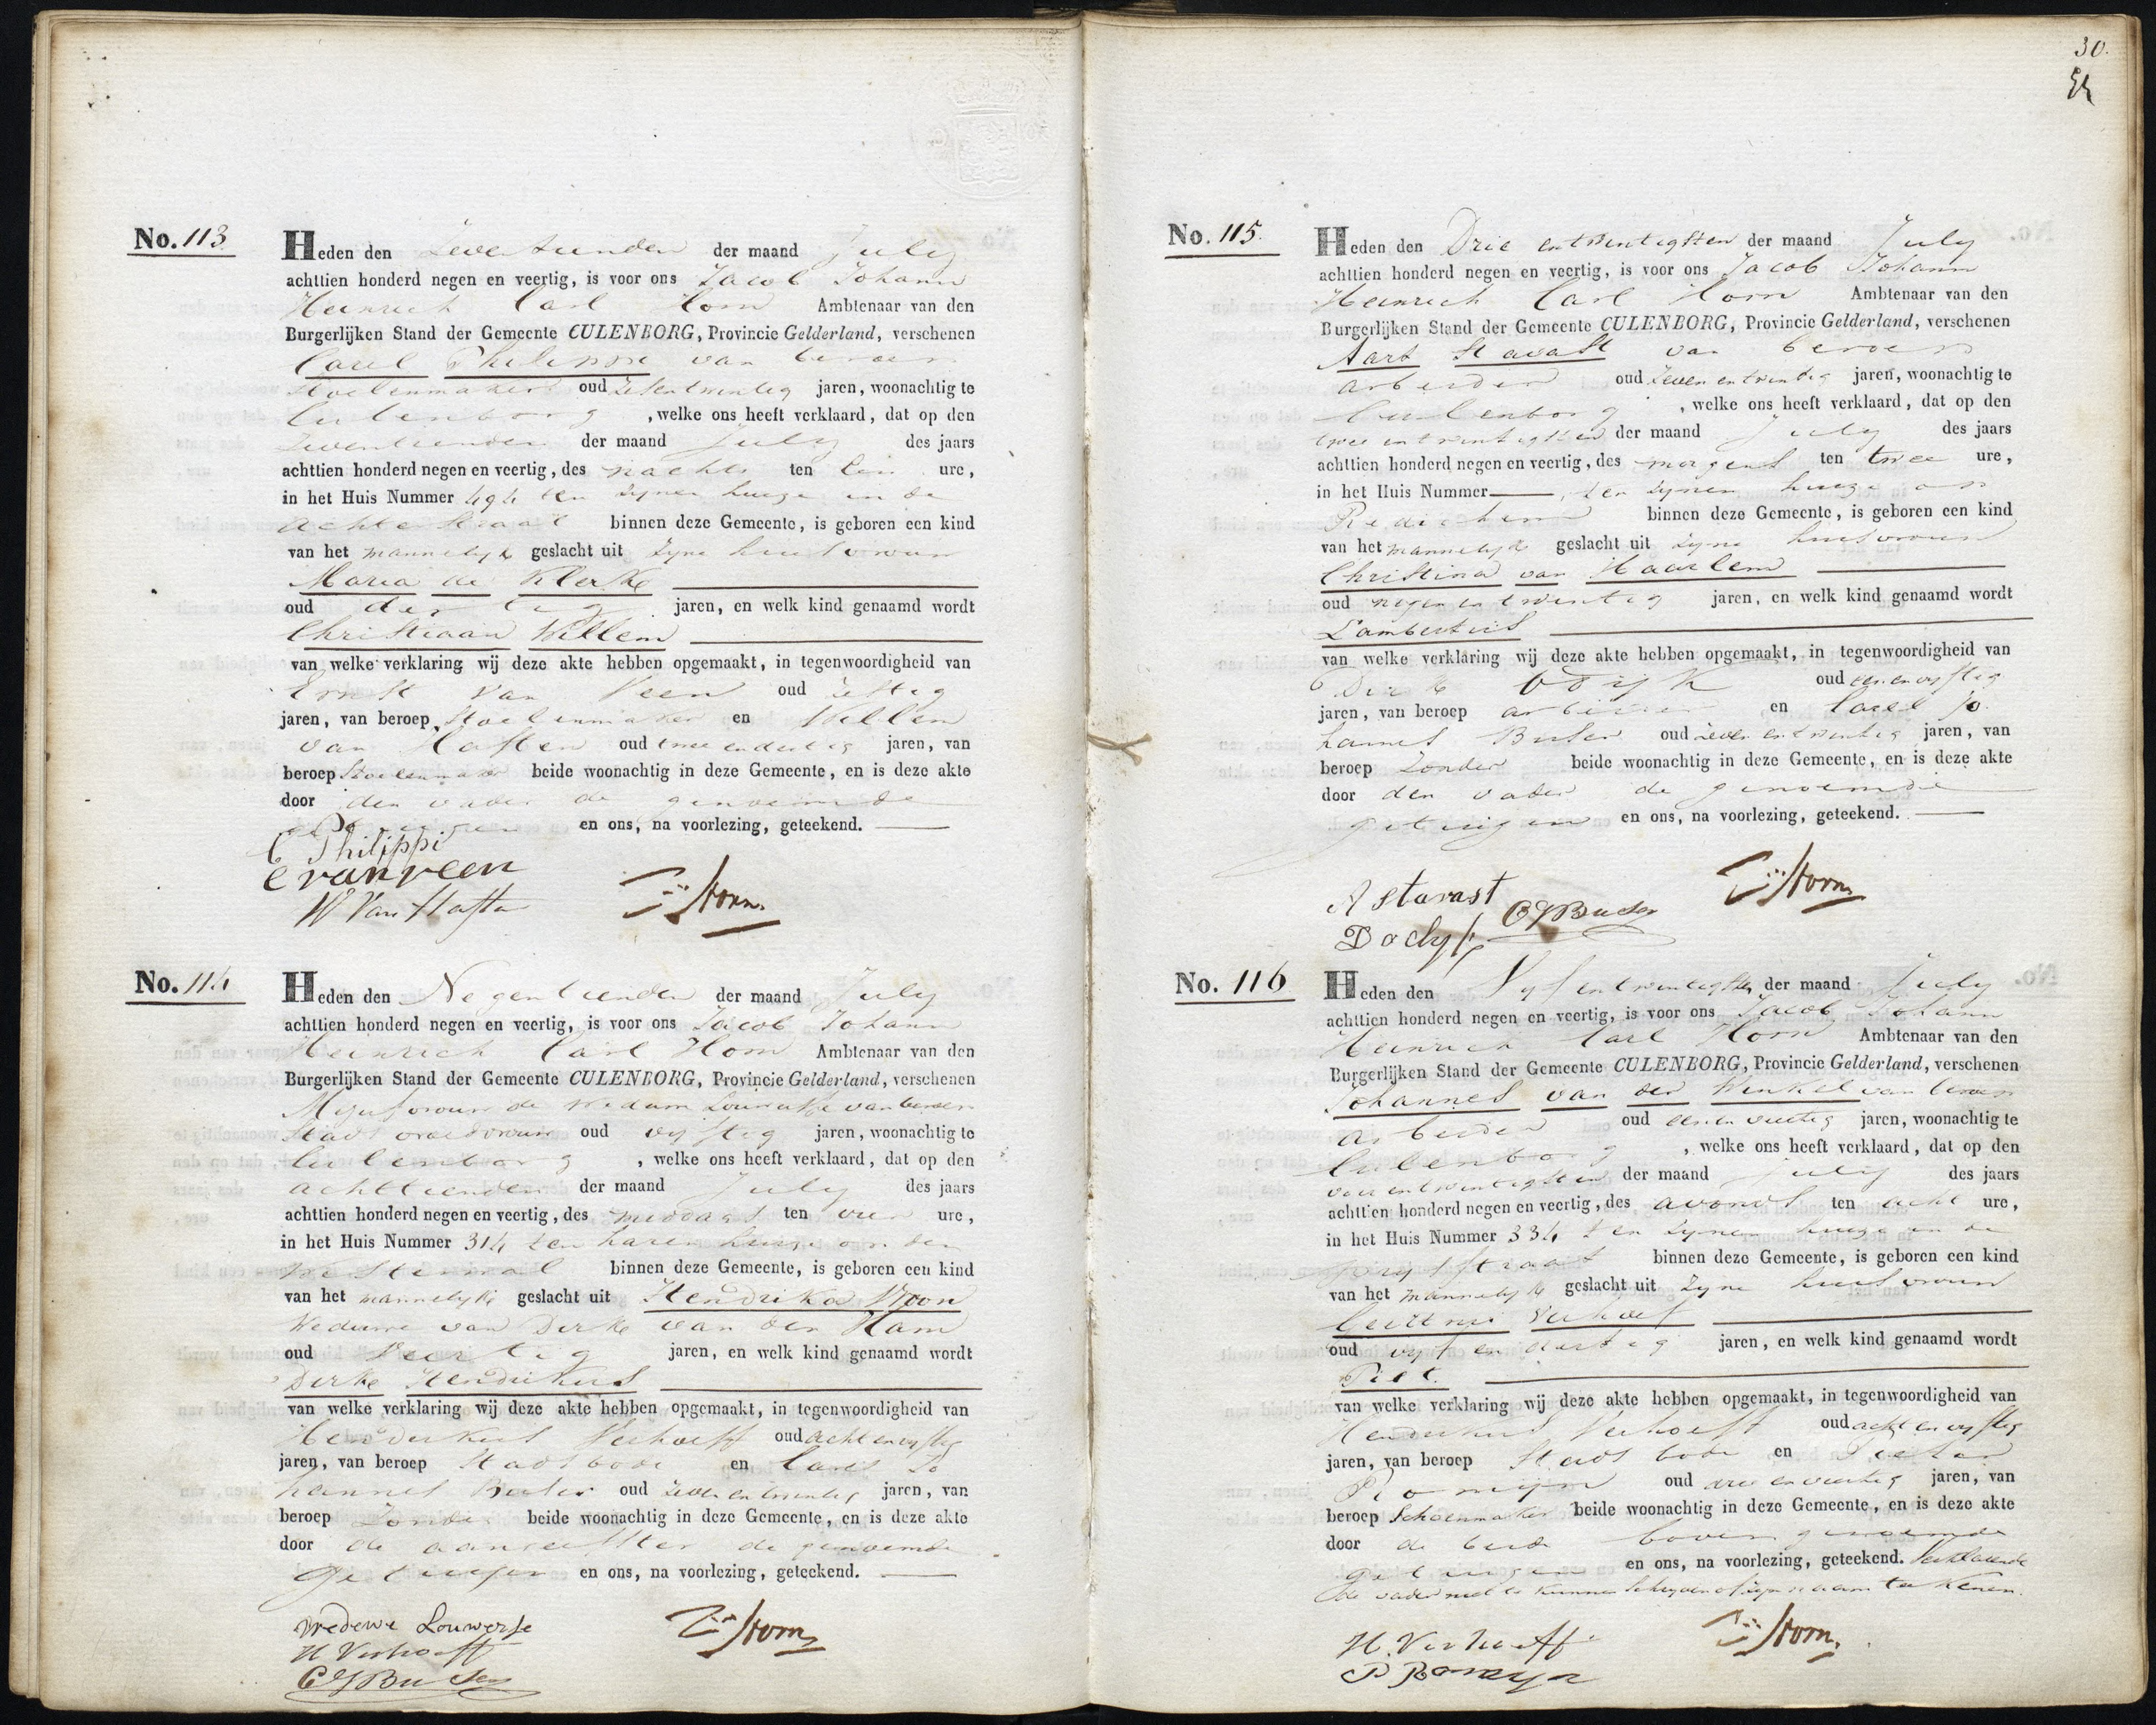 No. 113
Heden den Zeventienden der maand July
achttien honderd negen en veertig, is voor ons Jacob Johann
Heinrich Carl Horn Ambtenaar van den
Burgerlijken Stand der Gemeente CULENBORG, Provincie Gelderland, verschenen
Carel Philippi van beroep
Stoelenmaker oud zesentwintig jaren, woonachtig te
Culenborg, welke ons heeft verklaard, dat op den
Zeventienden der maand July des jaars
achttien honderd negen en veertig, des nachts ten een ure,
in het Huis Nummer 494 ten zynen huize in de
Achterstraat binnen deze Gemeente, is geboren een kind
van het mannelyk geslacht uit zyne huisvrouw
Maria de Klerke
oud dertig jaren, en welk kind genaamd wordt
Christiaan Willem
van welke verklaring wij deze akte hebben opgemaakt, in tegenwoordigheid van
Ernst van Veen oud zestig
jaren, van beroep Stoelenmaker en Willem
van Haften oud twee endertig jaren, van
beroep Stoelenmaker beide woonachtig in deze Gemeente, en is deze akte
door den vader de genoemde
getuigen en ons, na voorlezing, geteekend.
C Philippi
E van veen
W Van Haften
Horn
No. 114
Heden den Negentienden der maand July
achttien honderd negen en veertig, is voor ons Jacob Johann
Heinrich Carl Horn Ambtenaar van den
Burgerlijken Stand der Gemeente CULENBORG, Provincie Gelderland, verschenen
Mejufvrouw de Weduwe Louwerse van beroep
Stads vroedvrouw oud vyftig jaren, woonachtig te
Culenborg, welke ons heeft verklaard, dat op den
achttienden der maand July des jaars
achttien honderd negen en veertig, des middags ten vier ure,
in het Huis Nummer 314 ten haren huize op den
binnen deze Gemeente, is geboren een kind
van het mannelyk geslacht uit Hendrika Kroon
Weduwe van Dirk van den Ham
oud Veertig jaren, en welk kind genaamd wordt
Dirk Hendrikus
van welke verklaring wij deze akte hebben opgemaakt, in tegenwoordigheid van
Hendrikus Verhoeff oud acht en vyftig
jaren, van beroep Stadsbode en Carel Jo
hannes Buser oud zeven en twintig jaren, van
beroep Zonder beide woonachtig in deze Gemeente, en is deze akte
door de aangeefster de genoemde
getuigen en ons, na voorlezing, geteekend.
Wedewe Louwerse
H Verhoeff
C J Buser
Horn
30.
No. 115.
Heden den Drie entwintigsten der maand July
achttien honderd negen en veertig, is voor ons Jacob Johann
Heinrich Carl Horn Ambtenaar van den
Burgerlijken Stand der Gemeente CULENBORG, Provincie Gelderland, verschenen
Aart Stavast van beroep
arbeider oud zeven entwintig jaren, woonachtig te
Culenborg, welke ons heeft verklaard, dat op den
twee entwintigsten der maand July des jaars
achttien honderd negen en veertig, des morgens ten twee ure,
in het Huis Nummer ten zynen huize op
Redichem binnen deze Gemeente, is geboren een kind
van het mannelyk geslacht uit zyne huisvrouw
Christina van Haarlem
oud negen entwintig jaren, en welk kind genaamd wordt
Lambertus
van welke verklaring wij deze akte hebben opgemaakt, in tegenwoordigheid van
Dirk oud een en vyftig
jaren, van beroep arbeider en Carel Jo
hannes Buser oud zeven entwintig jaren, van
beroep Zonder beide woonachtig in deze Gemeente, en is deze akte
door den vader de genoemde
getuigen en ons, na voorlezing, geteekend.
A Stavast
C J Buser
Horn
No. 116
Heden den Vyf entwintigsten der maand July
achttien honderd negen en veertig, is voor ons Jacob Johann
Heinrich Carl Horn Ambtenaar van den
Burgerlijken Stand der Gemeente CULENBORG, Provincie Gelderland, verschenen
Johannes van der Winkel van beroep
arbeider oud een en veertig jaren, woonachtig te
Culenborg, welke ons heeft verklaard, dat op den
vier entwintigsten der maand July des jaars
achttien honderd negen en veertig, des avonds ten acht ure,
in het Huis Nummer 334 ten zynen huize in de
Prijsstraat binnen deze Gemeente, is geboren een kind
van het mannelyk geslacht uit zyne huisvrouw
Geertrui Verhoef
oud vyf en dertig jaren, en welk kind genaamd wordt
Piet.
van welke verklaring wij deze akte hebben opgemaakt, in tegenwoordigheid van
Hendrikus Verhoeff oud acht en vyftig
jaren, van beroep Stads bode en Pieter
Romijn oud drie en veertig jaren, van
beroep Schoenmaker beide woonachtig in deze Gemeente, en is deze akte
door de beide boven genoemde
getuigen en ons, na voorlezing, geteekend. Verklarende
de vader niet te kunnen schryven of zyn naam te tekenen.
H. Verhoeff
P Romeyn
Horn.